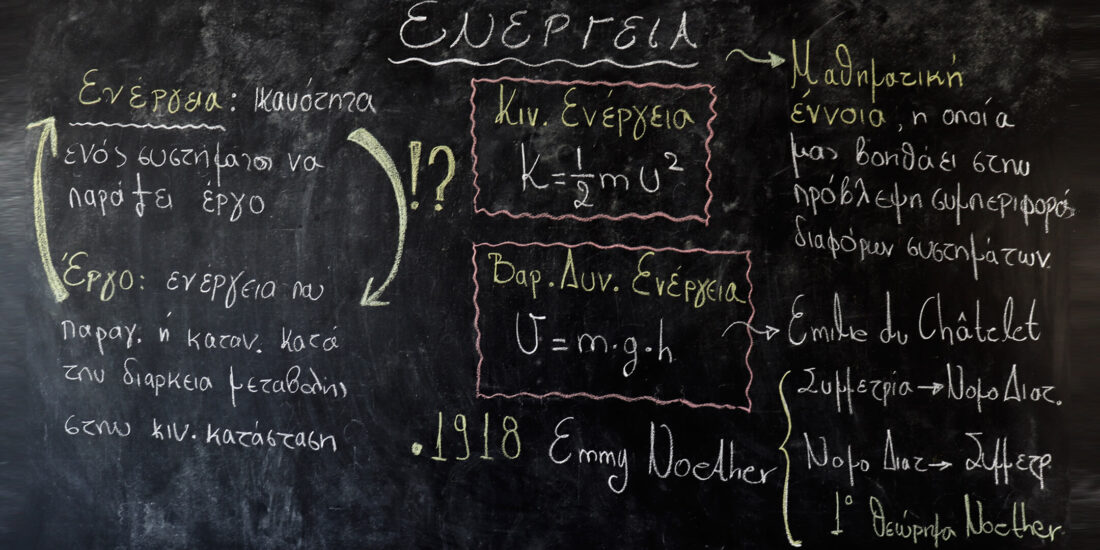 ΕΝΕΡΓΕΙΑ
Ενέργεια: Ικανότητα
ενός συστήματος να
παράξει έργο
Έργο: ενέργεια που
παραγ. ή καταν. κατά
την διαρκεια μεταβολής
στην κιν. κατάσταση
!?
Κιν. Ενέργεια
K = 1/2 m υ²
Βαρ. Δυν. Ενέργεια
U = m·g·h
.1918 Emmy Noether
Μαθηματική
έννοια, η οποία
μας βοηθάει στην
πρόβλεψη συμπεριφοράς
διαφόρων συστημάτων.
Emilie du Châtelet
Συμμετρία → Νομο Διατ.
Νομο Διατ → Συμμετρ
1º θεώρημα Noether.